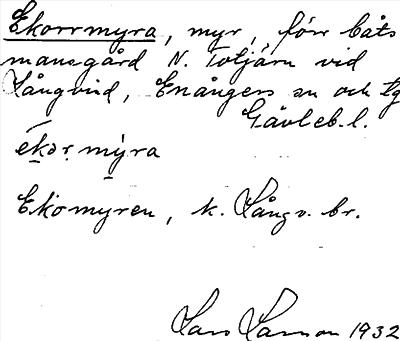 Ekorrmyra, myr, förr båts
mansgård N. Totjärn vid
Långvind, Enångers sn och tg
Gävleb. l.
ékor. mýra
Ekomyren, k. Långv. br.
Lars Larsson 1932